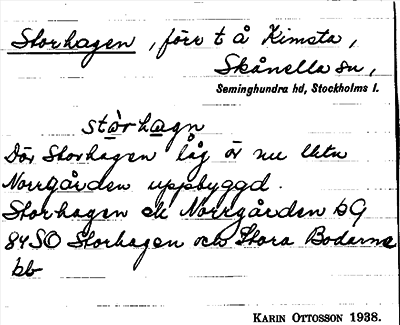 Storhagen, förr t å Kimsta,
Skånella sn,
Seminghundra hd, Stockholms l.
stòrhagn
Där Storhagen låg är nu
Norrgården uppbyggd.
Storhagen ek Norrgården bG
84SO Storhagen och Stora Bodarne
bb
KARIN OTTOSSON 1938.